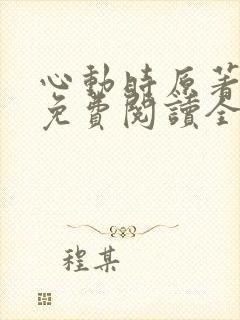 心動時原著
免費閱讀全
程某